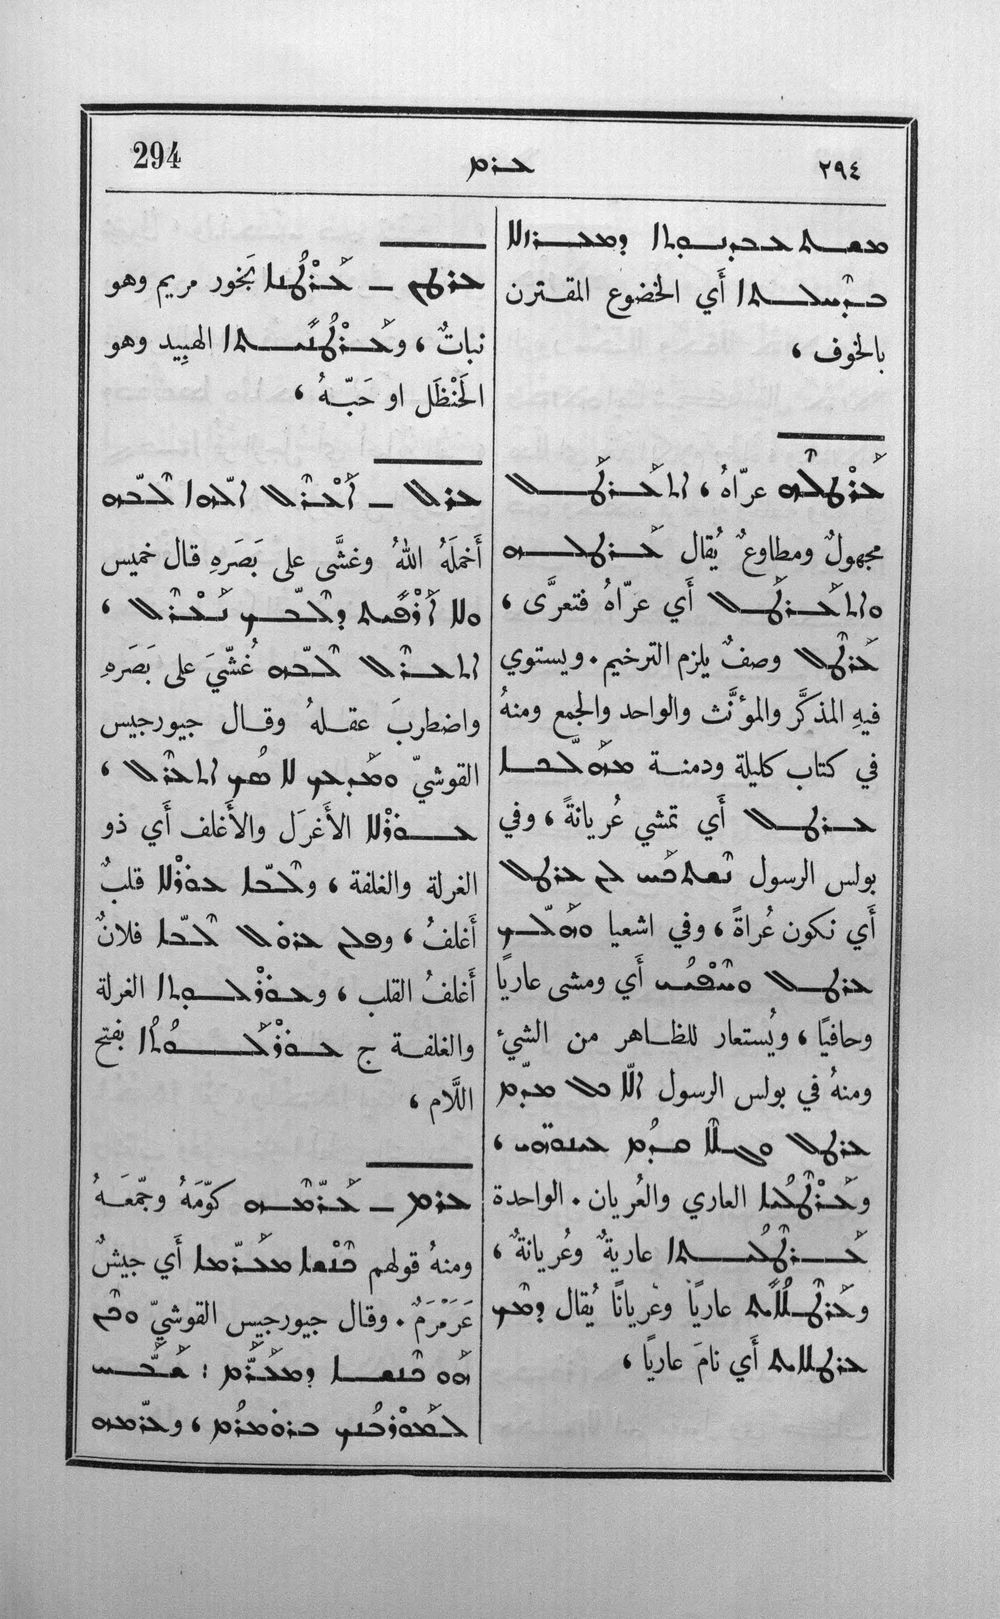 ٢٩٤ ܥܪܡ 294
ܕܡܥܪܐܠܐ
أَي الخضوع المقترن
بالخوف ،
ܥܪܛܠܗ عرّاهُ ، ܐܬܥܪܛܠ
مجهولٌ ومطاوعٌ يُقال ܥܪܛܠܗ
ܘܐܬܥܪܛܠ أَي عرّاهُ فتعرَّى ،
ܥܪܛܠ وصفٌ يلزم الترخيم . ويستوي
فيهِ المذكَّر والمؤنَّث والواحد والجمع ومنهُ
في كتاب كليلة ودمنة ܡܗܠܟܐ
ܥܪܛܠ أَي تمشي عُريانةً ، وفي
بولس الرسول ܢܫܬܟܚ ܠܢ ܥܪܛܠ
أَي نكون عُراةً ، وفي اشعيا ܘܗܠܟ
ܥܪܛܠ ܘܚܦܝ أَي ومشى عاريًا
وحافيًا ، ويُستعار للظاهر من الشيٴ
ومنهُ في بولس الرسول ܐܠܐ ܟܠ ܡܕܡ
ܥܪܛܠ ܘܓܠܐ ܩܕܡ ܥܝܢܘܗܝ ،
وܥܪܛܠܝܐ العاري والعُريان . الواحدة
ܥܪܛܠܝܬܐ عاريةٌ وعُريانةٌ ،
وܥܪܛܠܐܝܬ عاريًا وعريانًا يُقال ܕܡܟ
ܥܪܛܠܐܝܬ أَي نامَ عاريًا ،
ܥܪܛܢ ــ ܥܪܛܢܝܐ بَخور مريم وهو
نباتٌ ، وܥܪܛܢܝܬܐ الهبيد وهو
الحَنْظَل او حَبّهُ ،
ܥܪܠ ــ ܐܥܪܠ ܐܠܗܐ ܠܒܗ
أَخملَهُ اللهُ وغشَّى على بَصَرهِ قال خميس
ܘܠܐ ܐܪܦܝܬ ܕܠܒܟ ܢܥܪܠ ،
ܐܬܥܪܠ ܠܒܗ غُشّيَ على بَصَرهِ
واضطربَ عقلهُ وقال جيورجيس
القوشيّ ܠܐ ܐܬܥܪܠ ،
ܥܘܪܠܐ الأَغرَل والأَغلف أَي ذو
الغرلة والغلفة ، وܠܒܐ ܥܘܪܠܐ قلبٌ
أَغلفُ ، وܦܠܢ ܥܪܘܠ ܠܒܐ فلانٌ
أَغلفُ القلب ، وܥܘܪܠܘܬܐ الغرلة
والغلفة ج ܥܘܪܠܘܬܐ بفتح
اللَّام ،
ܥܪܡ ــ ܥܪܡܗ كوّمَهُ وجمّعَهُ
ومنهُ قولهم ܟܢܫܐ ܡܥܪܡܐ أَي جيشٌ
عَرَمْرَمٌ . وقال جيورجيس القوشيّ ܘܟܢ
ܗܘ ܟܢܫܐ ܕܡܥܪܡ :
ܘܥܪܡܗ